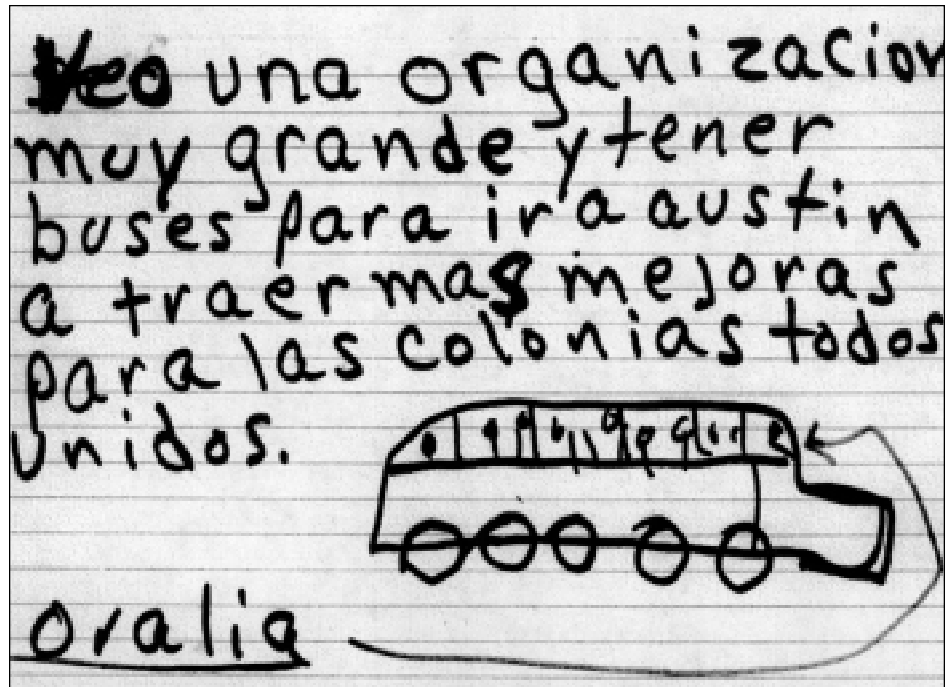 Veo una organizacion
muy grande y tener
buses para ir a austin
a traer mas mejoras
para las colonias todos
unidos.
oralia